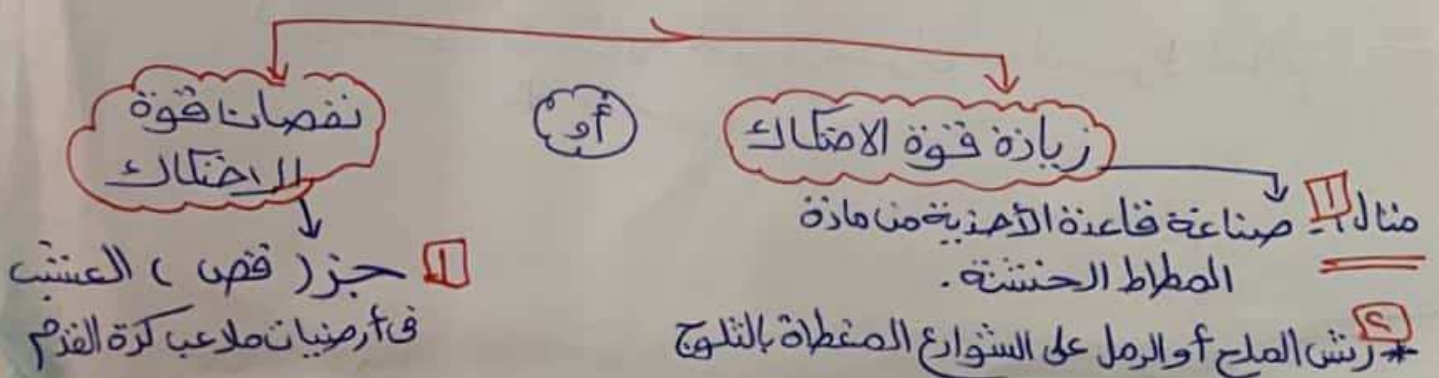 زيادة قوة الاحتكاك
أو
نقصان قوة
الاحتكاك
مثال 1- صناعة قاعدة الأحذية من مادة
المطاط الخشنة.
2 * رش الملح أو الرمل على الشوارع المغطاة بالثلوج
1 جز ( قص ) العشب
فى أرضيات ملاعب كرة القدم